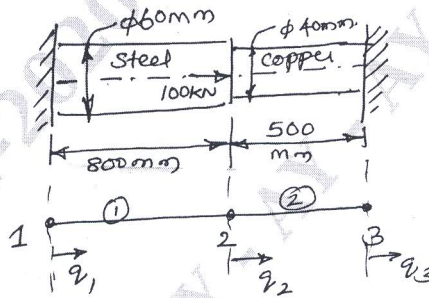 φ60mm
φ 40mm.
Steel
Copper
100KN
800mm
500
mm
①
②
1
2
3
q1
q2
q3